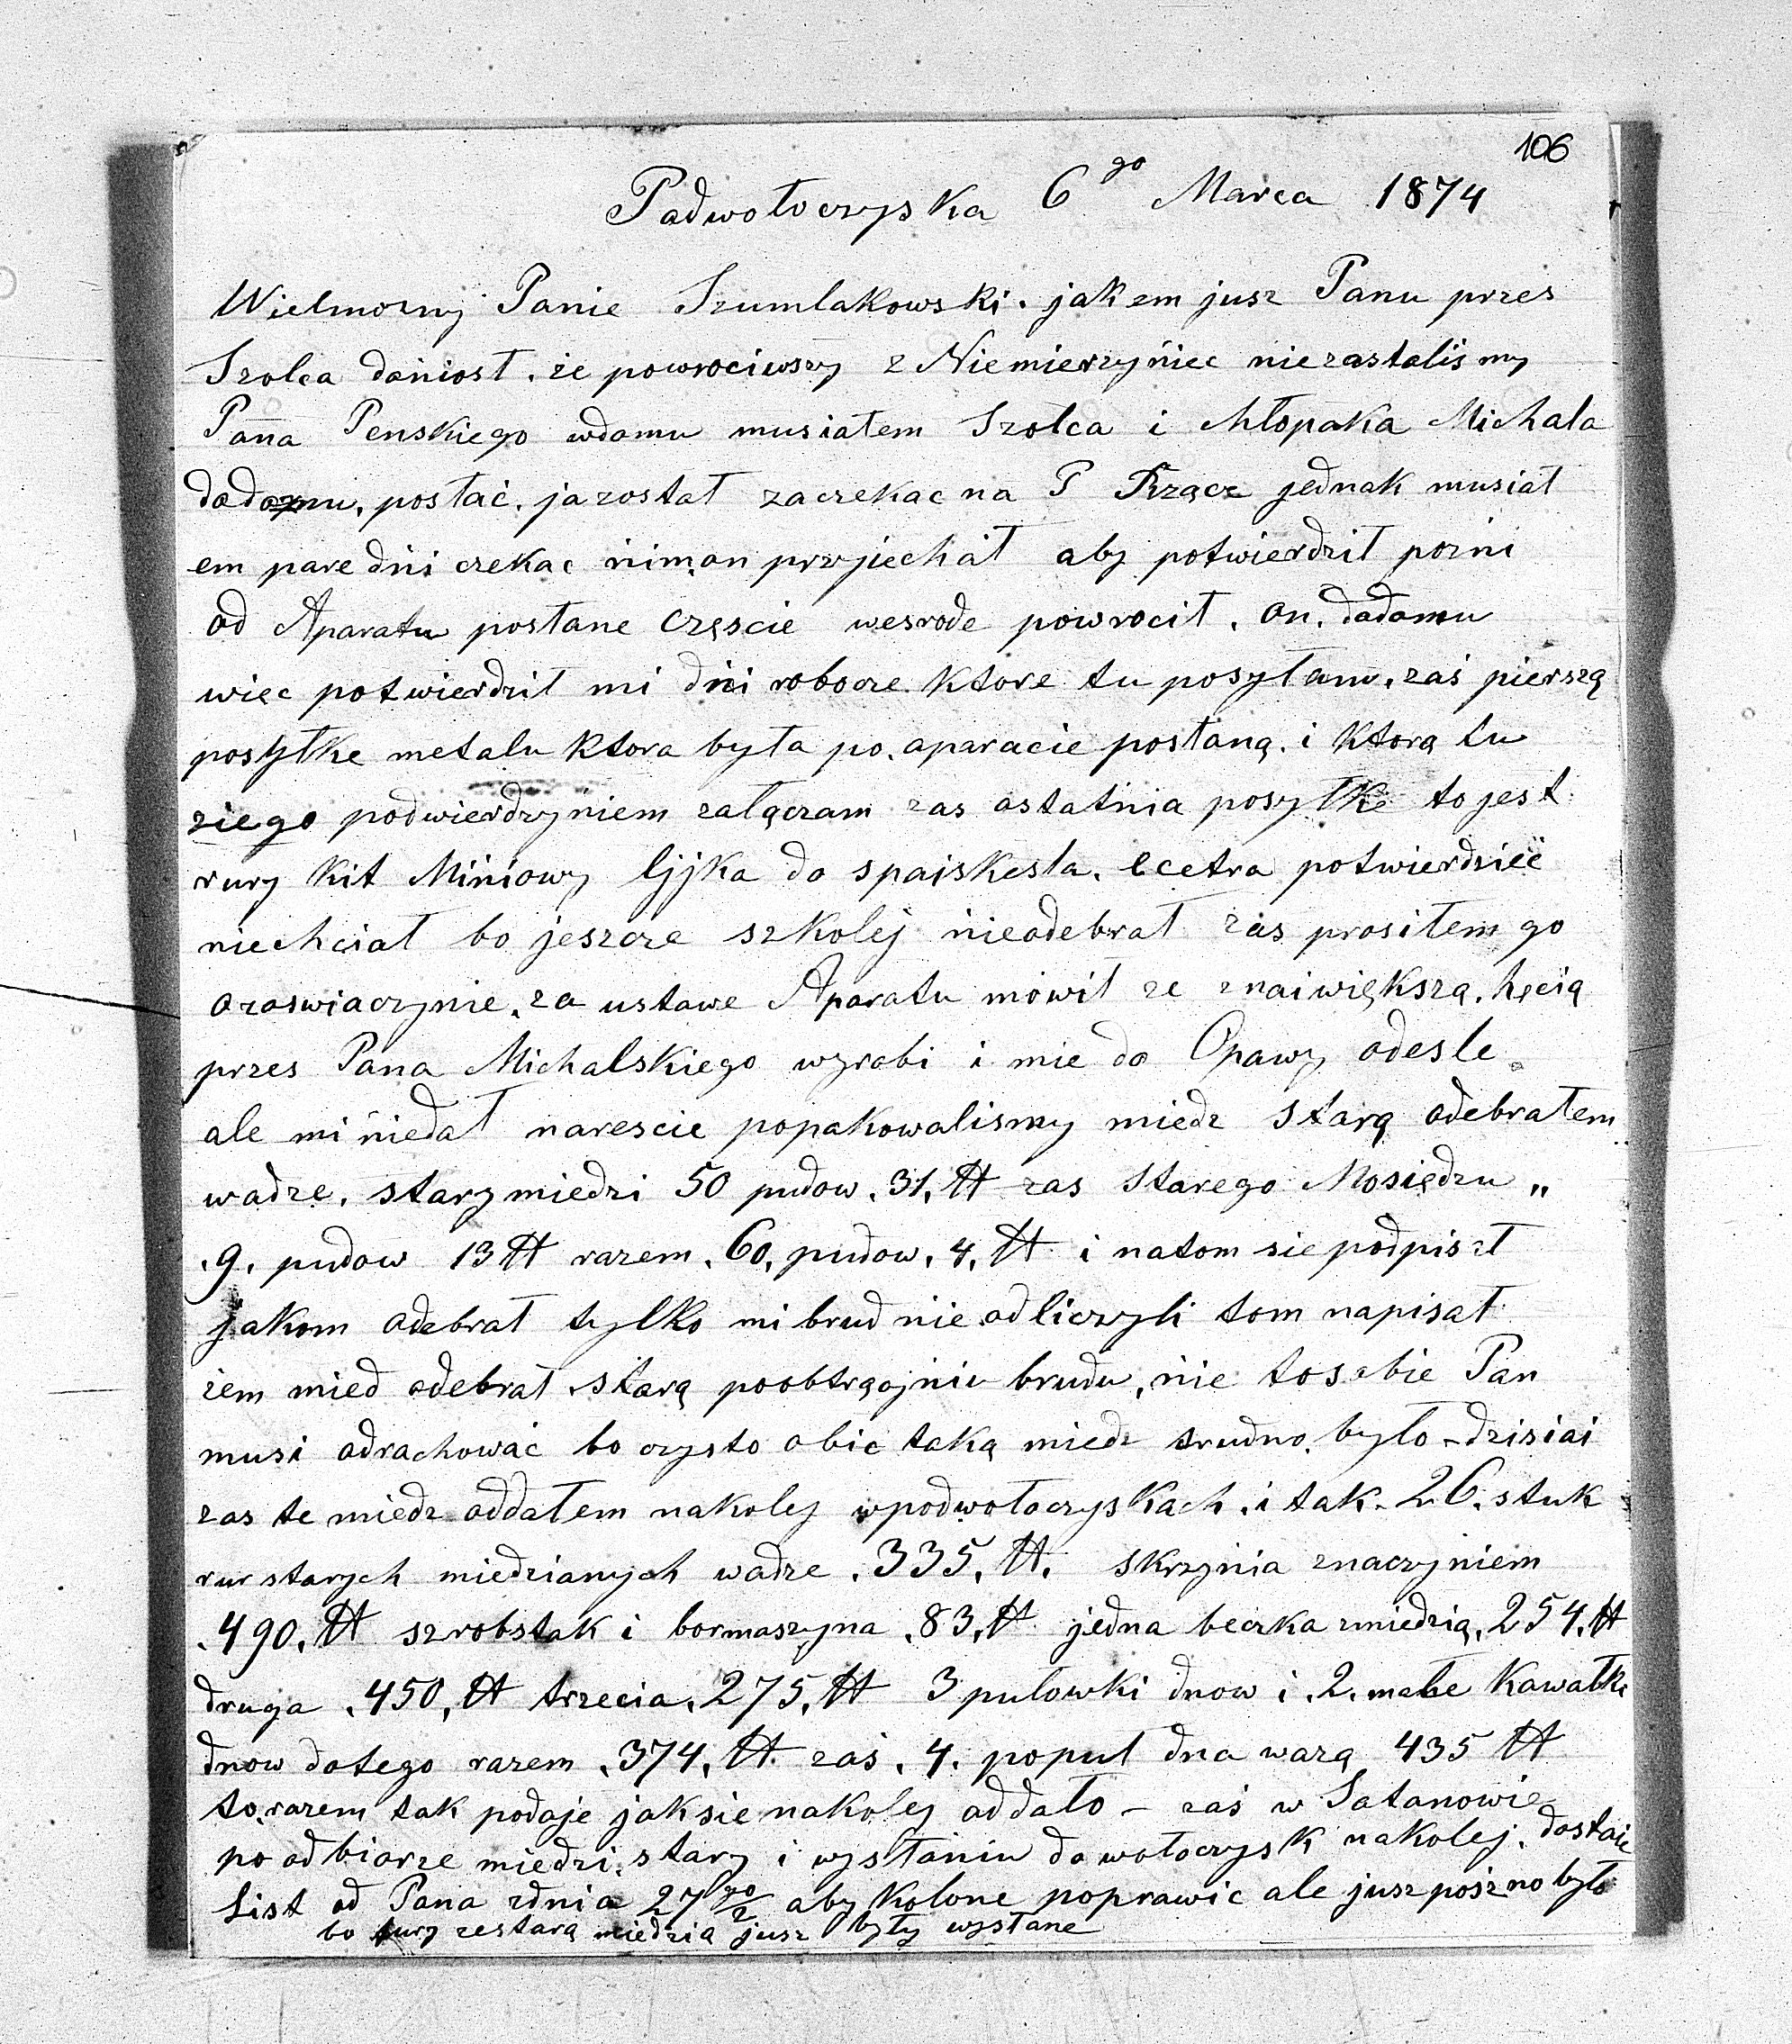 106
Padwołoczyska 6go Marca 1874
Wielmorny Panie Szumlakowski. jakem jusz Panu przes
Szolca doniosł. że powrociwszy z Niemierzyńiec niezastaliśmy
Pana Penskiego wdomu musiałem Szolca i chłopaka Michala
dodomu, posłać. ja został zaczekac na P Rzącz jednak musiał
em pare dni czekac nim on przyjechał aby potwierdził pozni
od Aparatu posłane częscie wesrode powrocił. on. dodomu
więc potwierdził mi dni robocze ktore tu posyłam. zaś pierszą
posyłke metalu ktora była po. aparacie posłaną. i ktorą tu
ziego podwierdzyniem załączam zas ostatnia posyłke to jest
rury kit Miniowy lyjka do spaiskesla. ecetra potwierdzieć
niechciał bo jeszcze szkolej nieodebrał zas prosiłem go
ozaswiaczynie. za ustawe Aparatu mowił ze znaiwiększą. hęcią
przes Pana Michalskiego wyrobi i mie do Opawy odesle.
ale mi niedał narescie popakowalismy miedz starą odebrałem
wadze. stary miedzi 50 pudow. 31. ℔ zas starego Mosiędzu „
.9. pudow 13 ℔ razem. 60. pudow. 4. ℔ i natom sie podpisał
jakom odebrał tylko mi brud nie odliczyli tom napisał
żem mied odebrał starą poobtrącyniu brudu, nie to sobie Pan
musi odrachować bo czysto obic taką miedz trudno. było - dzisiai
zas te miedz oddałem nakolej wpodwołoczyskach. i tak. 26. stuk
rur starych miedzianych wadze. 335. ℔. skrzynia znaczyniem
.490. ℔ szrobstak i bormaszyna .83. ℔ jedna beczka zmiedzią. 254. ℔
druga .450. ℔ trzecia. 275. ℔ 3 pułowki dnow i .2. małe kawałki
dnow dotego razem .374. ℔. zaś .4. popuł dna warzą 435 ℔
to. razem tak podaje jak sie nakolej oddało - zaś w Satanowie
po odbiorze miedzi. stary i wysłaniu do wołoczysk nakolej. dostaie
List od Pana zdnia 27go/2 aby kolone poprawic ale jusz poszno było
bo fury zestarą miedzią jusz były wysłane